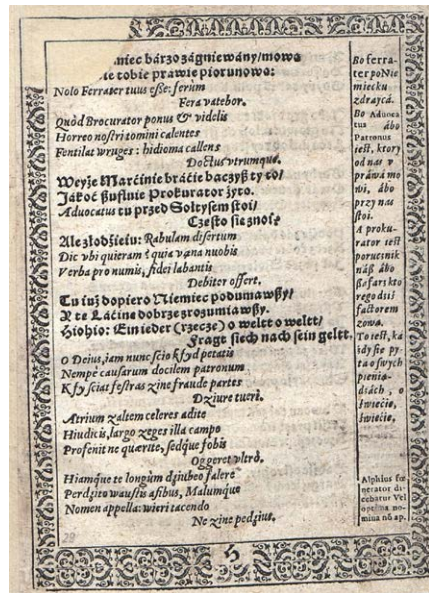 miec bárzo zágniewány/mowa
ie tobie práwie piorunowo:
Nolo Ferrater tuus eße: ferùm
Fera vatebor.
Quòd Brocurator ponus & videlis
Horreo nostri tomini calentes
Fentilat wruges: hidioma callens
Doctus vtrumque.
Weyże Márćinie bráćie baczyß ty to/
Jákoć ßußnie Prokurator żyto.
Aduocatus tu przed Sołtysem stoi/
Często sie znoi?
Ale złodźieiu: Rabulam disertum
Dic vbi quieram? quia vana nuobis
Verba pro numis, fidei labantis
Debitor offert.
Tu iuż dopiero Niemiec podumawßy/
Y te Láćine dobrze zrozumiawßy.
Hiohio: Ein ieder (rzecze) o weltt o weltt/
Fragt siech nach sein geltt.
O Deius, iam nunc scio kfyd petatis
Nempè causarum docilem patronum
Kfy sciat festras zine fraude partes
Dziure tueri.
Atrium zaltem celeres adite
Hiudicis, largo zeges illa campo
Profenit ne quærite, sedque fobis
Oggeret vltrò.
Hiamque te longùm dziubeo falere
Perdzito waustis afibus, Malumque
Nomen appella: wieri tacendo
Ne zine pedzius.
29
H
Bo ferra-
ter po Nie
miecku
zdraycá.
Bo Aduoca
tus ábo
Patronus
iest, ktory
od nas v
práwá mo
wi, ábo
przy nas
stoi.
A proku-
rator iest
porucznik
náß ábo
ßafarz kto
rego dźiś
factorem
zową.
To iest, ká
żdy sie py
ta o swych
pienią-
dzách, o
świećie,
świećie,
Alphius fœ
nerator di-
cebatur Vel
optima no-
mina nō ap.